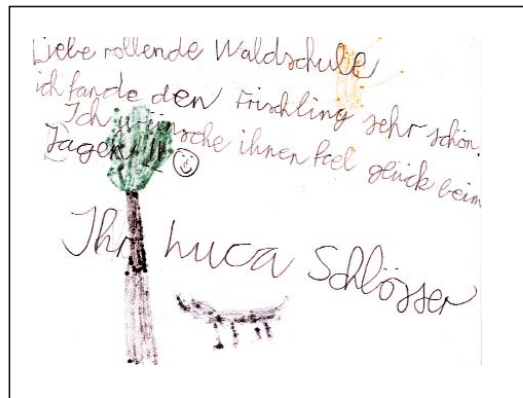 Liebe rollende Waldschule
ich fande den Frischling sehr schön.
Ich wünsche ihnen fiel glück beim
Jagen!!!
Ihr Luca Schlösser